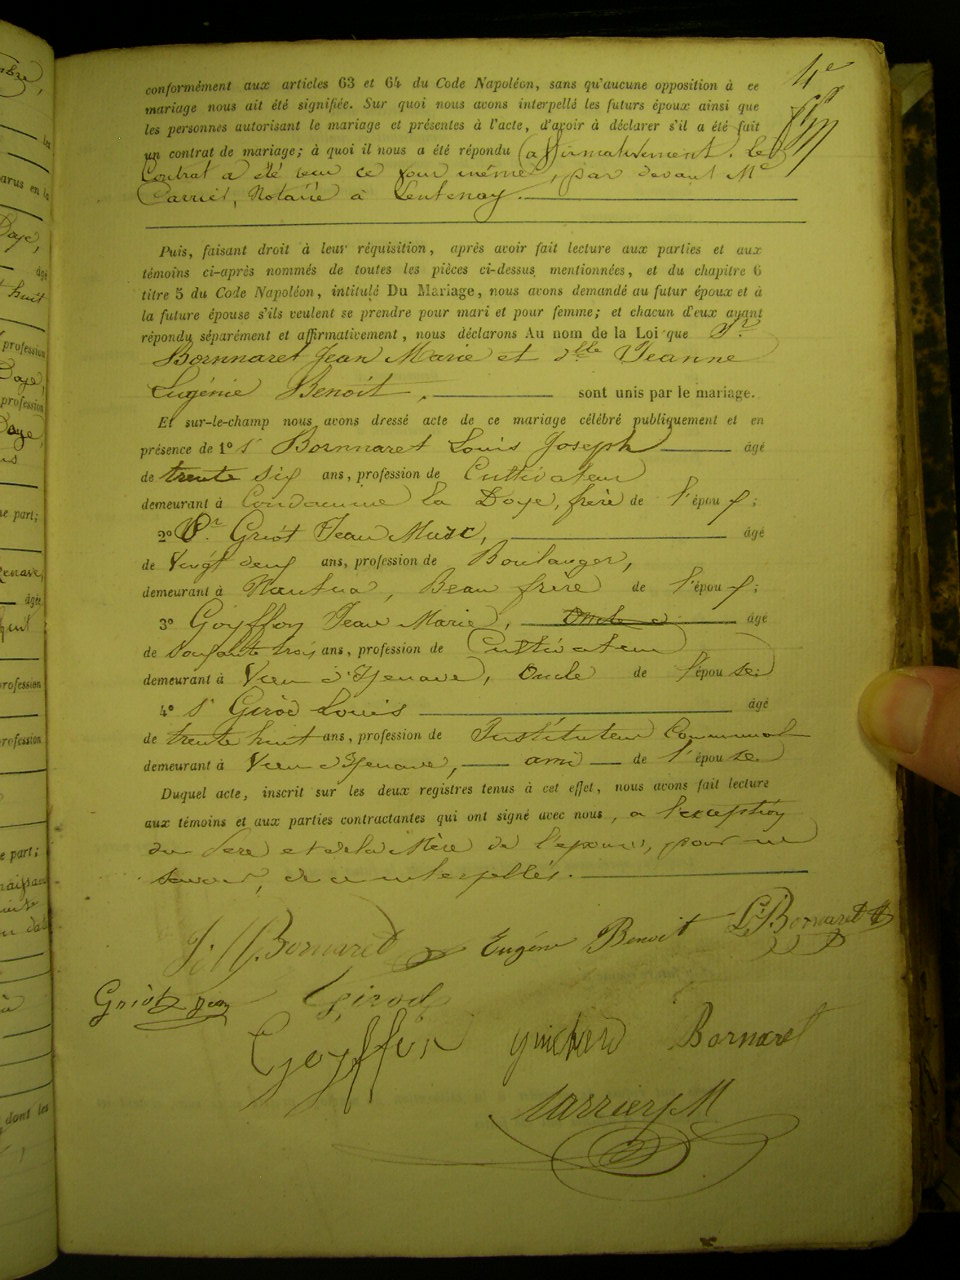 4e
conformément aux articles 63 et 64 du Code Napoléon, sans qu'aucune opposition à ce
mariage nous ait été signifiée. Sur quoi nous avons interpellé les futurs époux ainsi que
les personnes autorisant le mariage et présentes à l'acte, d'avoir à déclarer s'il a été fait
un contrat de mariage; à quoi il nous a été répondu affirmativement. le
Contrat a été reçu ce jour même, par devant Me
Carrier, Notaire à Leutenay.
Puis, faisant droit à leur réquisition, après avoir fait lecture aux parties et aux
témoins ci-après nommés de toutes les pièces ci-dessus mentionnées, et du chapitre 6
titre 5 du Code Napoléon, intitulé Du Mariage, nous avons demandé au futur époux et à
la future épouse s'ils veulent se prendre pour mari et pour femme; et chacun d'eux ayant
répondu séparément et affirmativement, nous déclarons Au nom de la Loi que Sr
Bornnaret Jean Marie et dlle Jeanne
Eugénie Benoit, sont unis par le mariage.
Et sur-le-champ nous avons dressé acte de ce mariage célébré publiquement et en
présence de 1° sr Bornnaret Louis Joseph âgé
de trente six ans, profession de Cultivateur
demeurant à Condamine la Doye, frère de l'époux;
2° Sr Griot Jean Marc, âgé
de Vingt neuf ans, profession de Boulanger,
demeurant à Nantua, Beau frère de l'époux;
3° Goyffon Jean Marie, Oncle âgé
de soixante trois ans, profession de Cultivateur
demeurant à Vieu d'Izenave, Oncle de l'épouse;
4° sr Girod Louis âgé
de trente huit ans, profession de Instituteur Communal
demeurant à Vieu d'Izenave, ami de l'épouse.
Duquel acte, inscrit sur les deux registres tenus à cet effet, nous avons fait lecture
aux témoins et aux parties contractantes qui ont signé avec nous, a l'exception
du Père et de la Mère de l'épouse, pour ne
savoir, de ce interpellés.
J. M. Bornaret Eugénie Benoit Ls Bornaret
Griot Jean Girod
Goyffon Guichard Bornaret
Carrier M